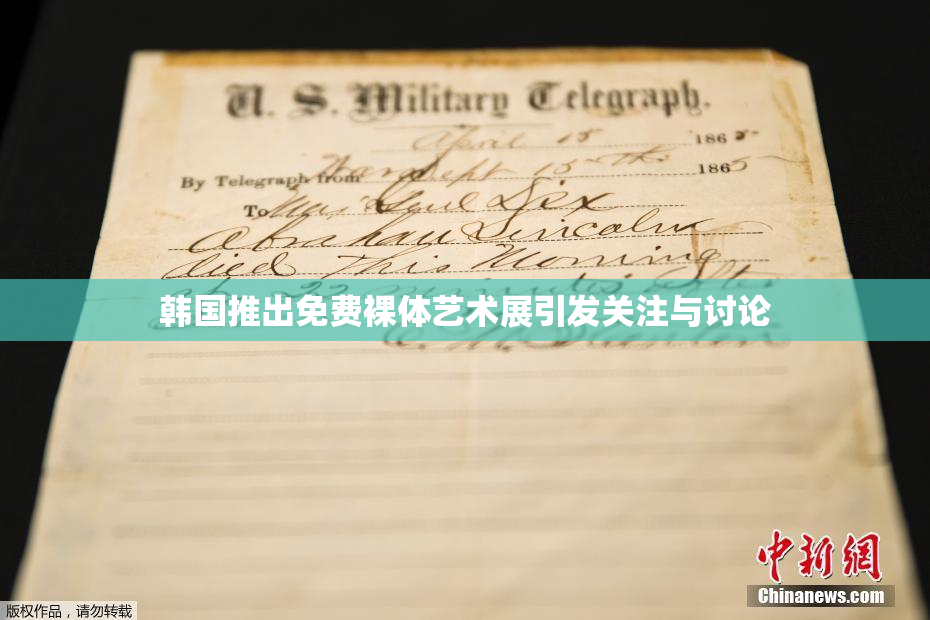 U. S. Military Telegraph.
April 15 1865
By Telegraph from War Dept 15th 1865
To Maj Genl Dix
Abraham Lincoln
died This Morning
at 22 minutes after
韩国推出免费裸体艺术展引发关注与讨论
E. M. Stanton
中新网
Chinanews.com
版权作品，请勿转载